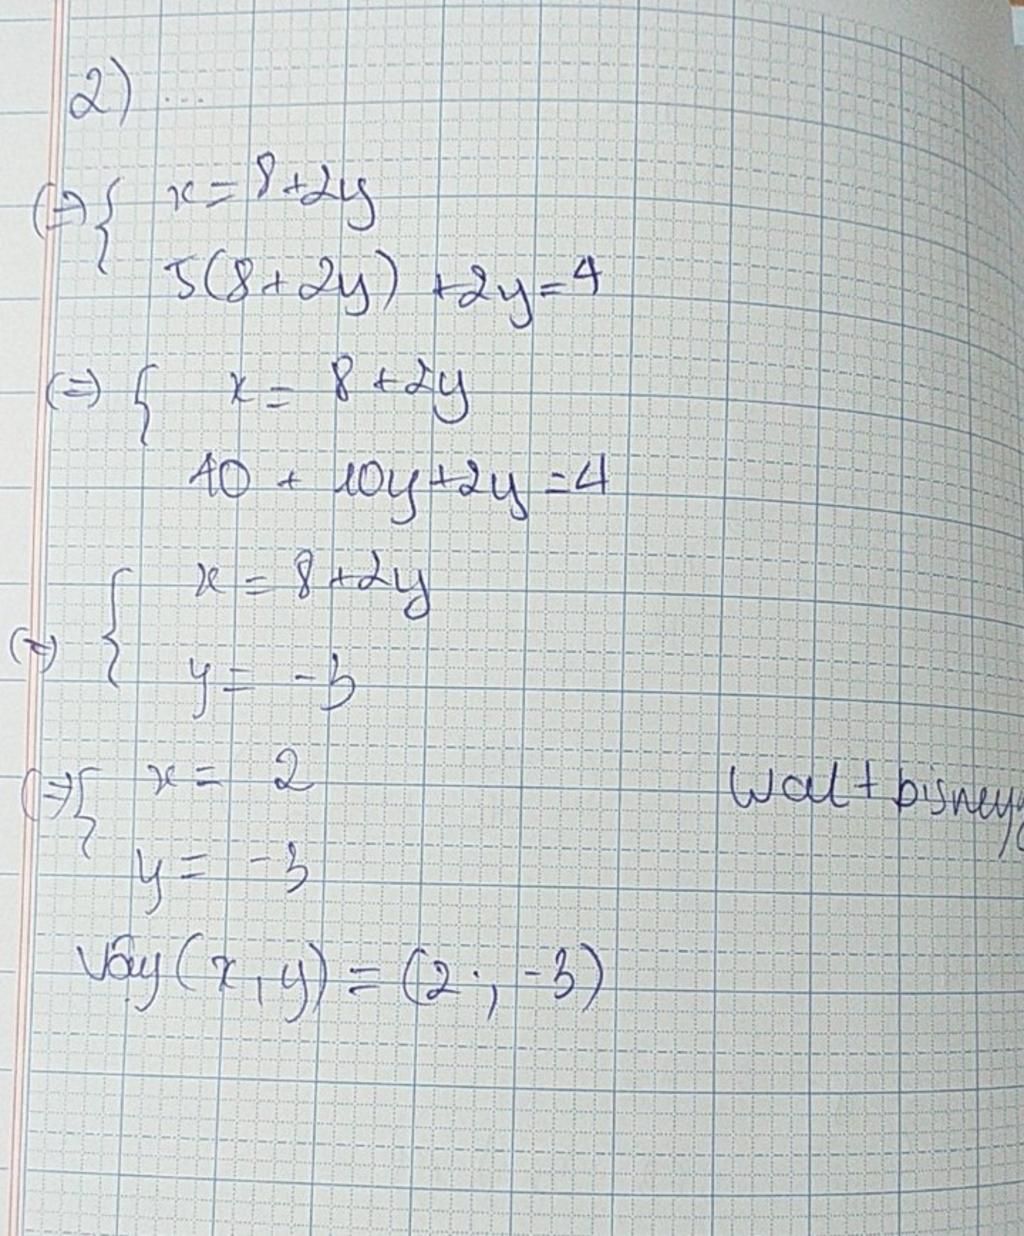 2) ...
(=) { x = 8 + 2y
5(8 + 2y) + 2y = 4
(=) { x = 8 + 2y
40 + 10y + 2y = 4
(=) { x = 8 + 2y
y = -3
(=) { x = 2
y = -3
Vậy (x, y) = (2; -3)